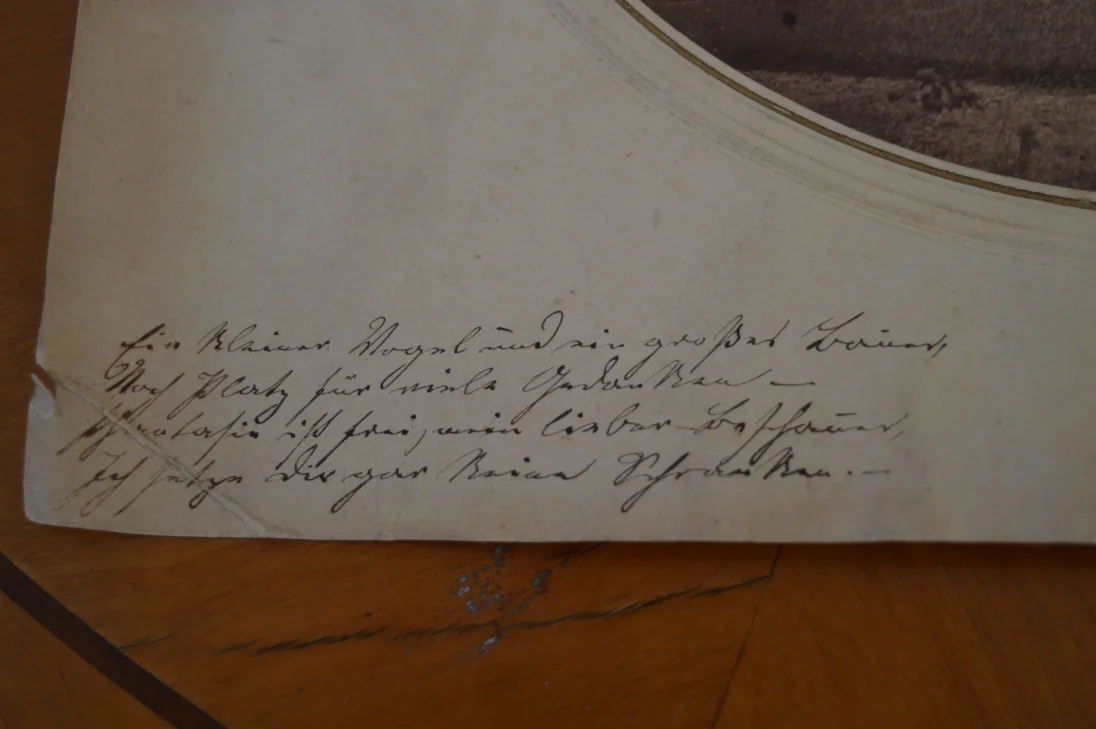 Ein kleiner Vogel und ein großes Bauer,
Noch Platz für viele Gedanken —
Phantasie ist frei, mein lieber Beschauer,
Ich setze dir gar keine Schranken. —